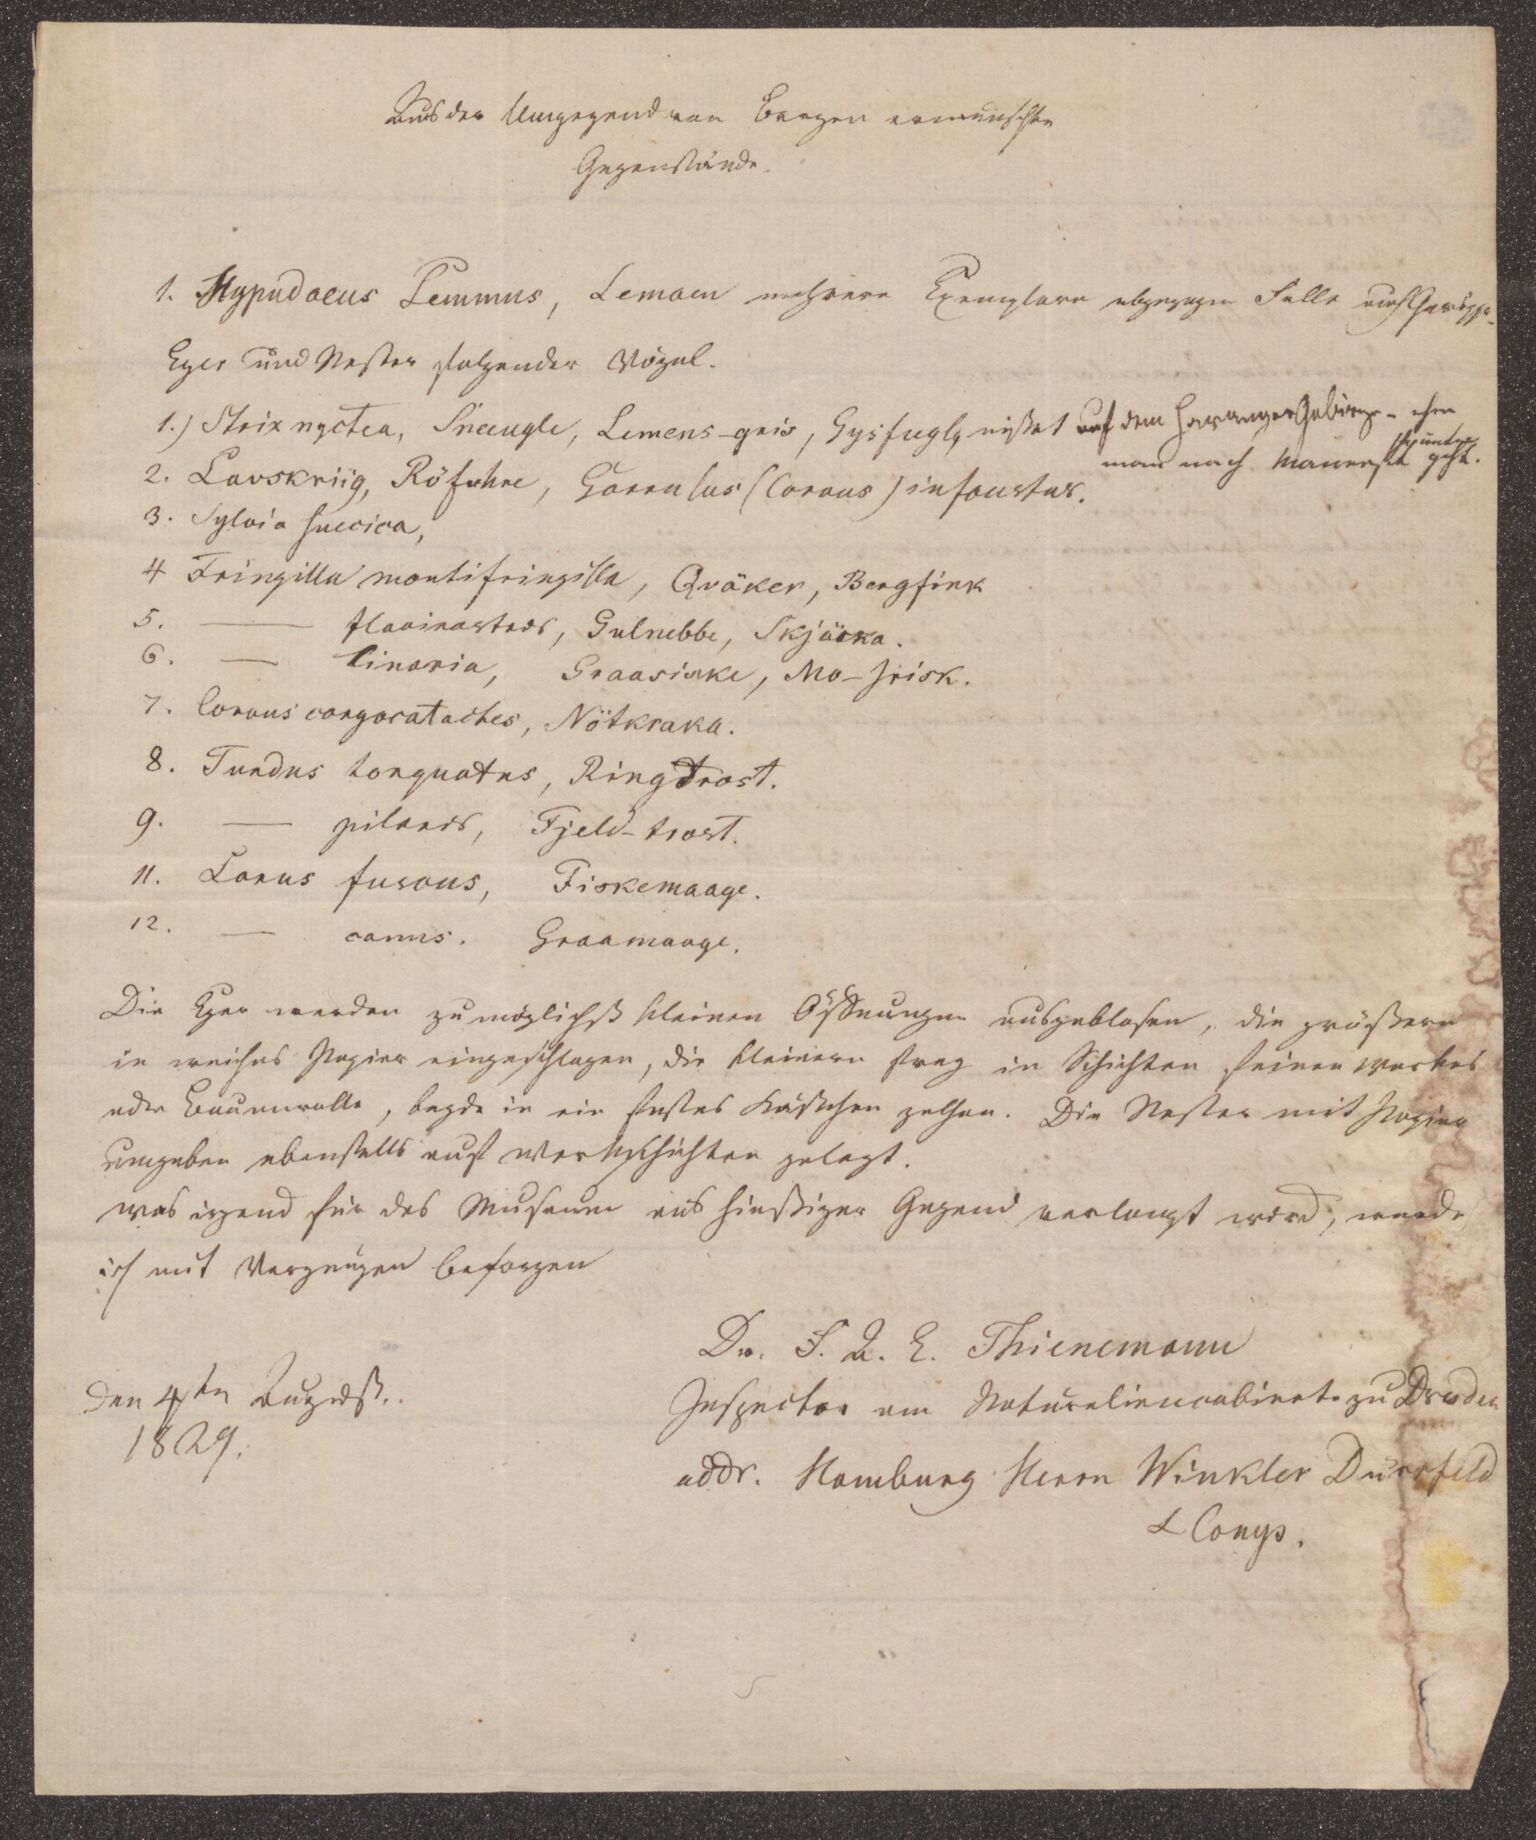 Aus der Umgegend von Bergen erwünschte
Gegenstände.
1. Hypudaeus Lemmus, Lemaen mehrere Exemplare abgezogen Felle auch Gerippe
Eyer und Nester folgender Vögel.
1.) Strix nyctea, Sneeugle, Lemens-gris, Gysfugl, nistet auf dem Gebirge - ehe
man nach herunter geht.
2. Lavskriig, Röfuhre, Garrulus (Corvus) infaustus.
3. Sylvia suecica,
4 Fringilla montifringilla, Qväker, Bergfink
5. — flavirostris, Gulnebbe, Skjäcka.
6. — linaria, Graasiske, Mo-Irisk.
7. Corvus caryocatactes, Nötkraka.
8. Turdus torquatus, Ringtrost.
9. — pilaris, Fjeld-trost.
11. Larus fuscus, Fiskemaage.
12. — canus. Graamaage.
Die Eyer werden zu möglichst kleinen Öffnungen ausgeblasen, die größern
in weiches Papier eingeschlagen, die kleinern in Schichten feinen Werkes
oder Baumwolle, beyde in ein festes Kästchen gethan. Die Nester mit Papier
umgeben ebenfalls auf Werkschichten gelegt.
Was irgend für das Museum aus hiesiger Gegend verlangt wird, werde
ich mit Vergnügen besorgen
Dr. F. A. L. Thienemann
Inspector am Naturaliencabinet zu Dresden
den 4ten August.
1829.
addr. Hamburg Herrn Winkler Dürrfeld
& Comp.